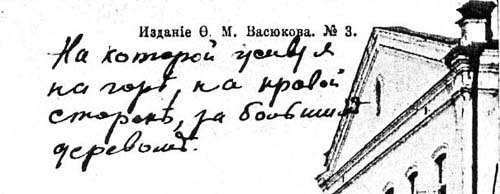 Изданіе Ѳ. М. Васюкова. № 3.
На которой живу я
на горѣ, на правой
сторонѣ, за большим
деревомъ.